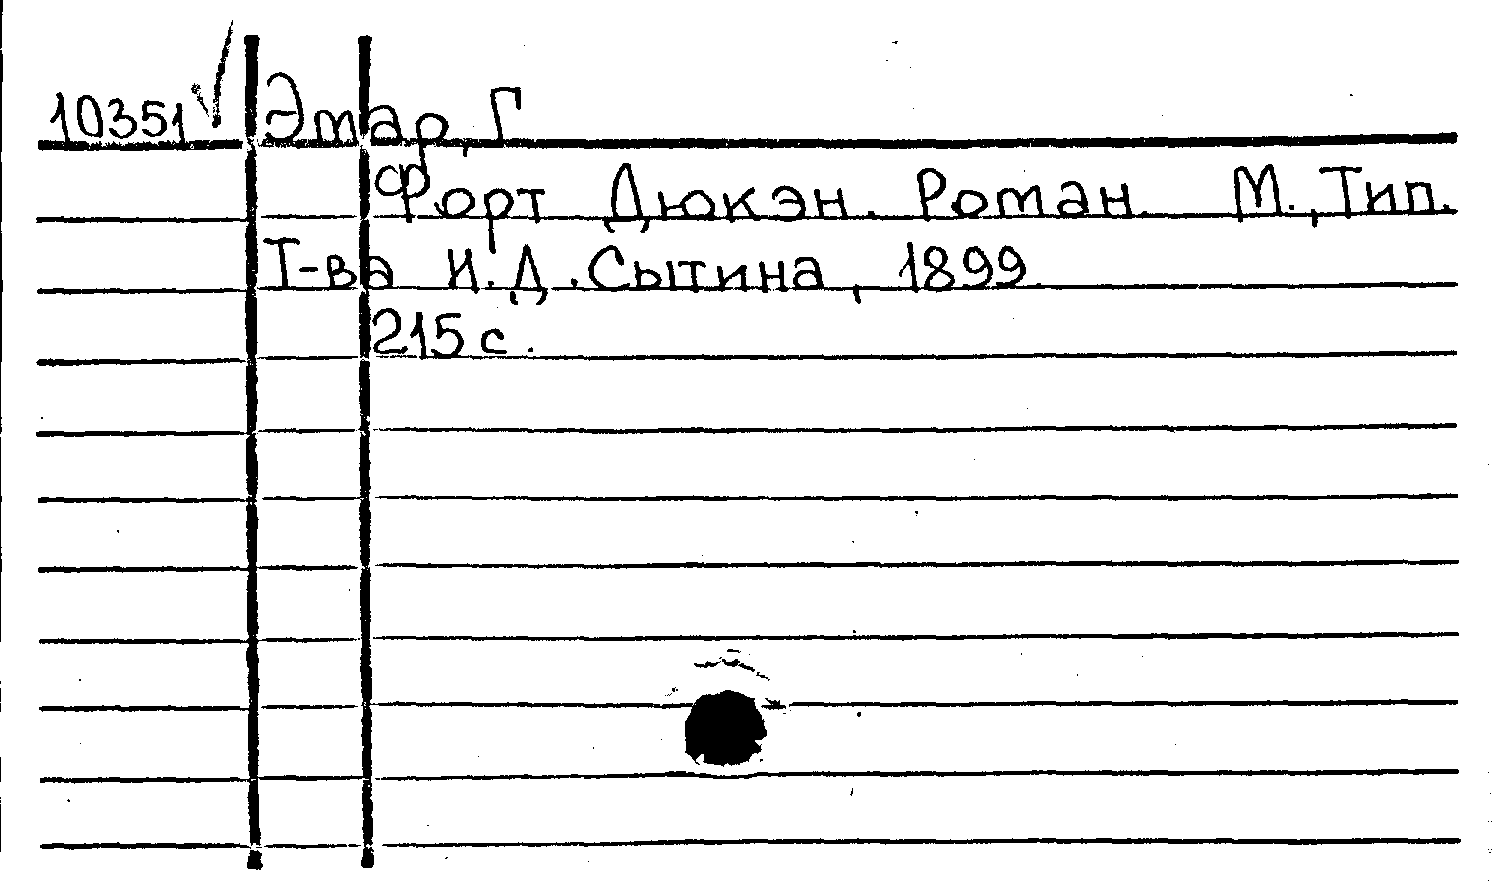 10351 Эмар, Г
Форт Дюкэн. Роман. М., Тип.
Т-ва И.Д. Сытина, 1899.
215 с.